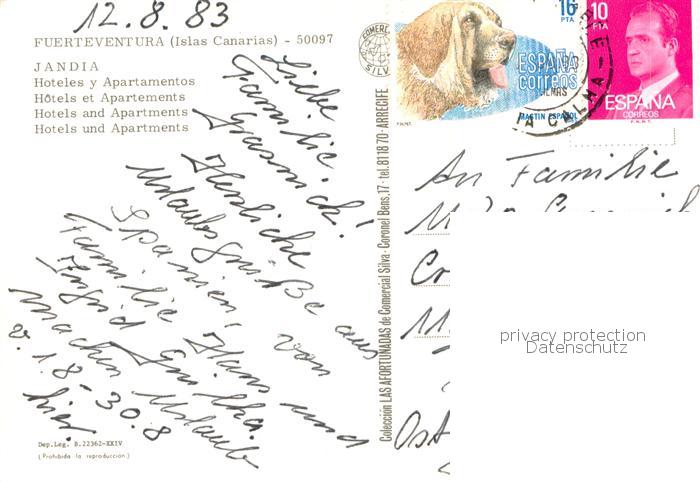 12.8.83
FUERTEVENTURA (Islas Canarias) - 50097
JANDIA
Hoteles y Apartamentos
Hôtels et Apartements
Hotels and Apartments
Hotels und Apartments
Liebe
Familie
Herzliche
Urlaubsgrüße aus
Spanien, von
Familie Hans und
Ingrid
machen Urlaub
v. 1.8-30.8
hier.
Dep. Leg. B. 22362-XXIV
(Prohibida la reproducción)
Colección LAS AFORTUNADAS de Comercial Silva · Coronel Bens, 17 · tel. 811870 · ARRECIFE
COMERCIAL
SILVA
16
PTA
ESPAÑA
correos
MASTIN ESPAÑOL
F.N.M.T.
10
PTA
ESPAÑA
CORREOS
F.N.M.T.
An Familie
Ost
privacy protection
Datenschutz